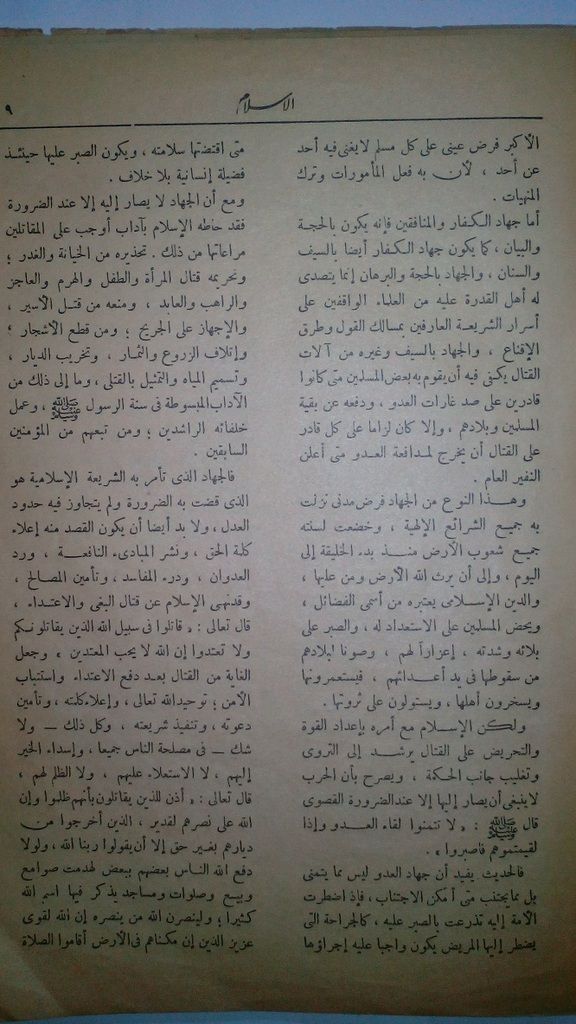 الاسلام
٩
الأكبر فرض عينى على كل مسلم لا يغنى فيه أحد
عن أحد ، لأن به فعل المأمورات وترك
المنهيات .
أما جهاد الكفار والمنافقين فإنه يكون بالحجة
والبيان ، كما يكون جهاد الكفار أيضا بالسيف
والسنان ، والجهاد بالحجة والبرهان إنما يتصدى
له أهل القدرة عليه من العلماء الواقفين على
أسرار الشريعة العارفين بمسالك القول وطرق
الإقناع ، والجهاد بالسيف وغيره من آلات
القتال يكفى فيه أن يقوم به بعض المسلمين متى كانوا
قادرين على صد غارات العدو ، ودفعه عن بقية
المسلمين وبلادهم ، وإلا كان لزاما على كل قادر
على القتال أن يخرج لمدافعة العدو متى أعلن
النفير العام .
وهذا النوع من الجهاد فرض مدنى نزلت
به جميع الشرائع الإلهية ، وخضعت لسنته
جميع شعوب الأرض منذ بدء الخليقة إلى
اليوم ، وإلى أن يرث الله الأرض ومن عليها ،
والدين الإسلامى يعتبره من أسمى الفضائل ،
ويحض المسلمين على الاستعداد له ، والصبر على
بلائه وشدته ، إعزازا لهم ، وصونا لبلادهم
من سقوطها فى يد أعدائهم ، فيستعمرونها
ويسخرون أهلها ، ويستولون على ثروتها .
ولكن الإسلام مع أمره بإعداد القوة
والتحريض على القتال يرشد إلى التروى
وتغليب جانب الحكمة ، ويصرح بأن الحرب
لا ينبغى أن يصار إليها إلا عند الضرورة القصوى
قال ﷺ : « لا تتمنوا لقاء العدو وإذا
لقيتموهم فاصبروا » .
فالحديث يفيد أن جهاد العدو ليس مما يتمنى
بل مما يجتنب متى أمكن الاجتناب ، فإذا اضطرت
الأمة إليه تذرعت بالصبر عليه ، كالجراحة التى
يضطر إليها المريض يكون واجبا عليه إجراؤها
متى اقتضتها سلامته ، ويكون الصبر عليها حينئذ
فضيلة إنسانية بلا خلاف .
ومع أن الجهاد لا يصار إليه إلا عند الضرورة
فقد حاطه الإسلام بآداب أوجب على المقاتلين
مراعاتها من ذلك . تحذيره من الخيانة والغدر ؛
وتحريمه قتال المرأة والطفل والهرم والعاجز
والراهب والعابد ، ومنعه من قتل الأسير ،
والإجهاز على الجريح ؛ ومن قطع الأشجار ؛
وإتلاف الزروع والثمار ، وتخريب الديار ،
وتسميم المياه والتمثيل بالقتلى ، وما إلى ذلك من
الآداب المبسوطة فى سنة الرسول ﷺ ، وعمل
خلفائه الراشدين ؛ ومن تبعهم من المؤمنين
السابقين .
فالجهاد الذى تأمر به الشريعة الإسلامية هو
الذى قضت به الضرورة ولم يتجاوز فيه حدود
العدل ، ولا بد أيضا أن يكون القصد منه إعلاء
كلمة الحق ، ونشر المبادىء النافعة ، ورد
العدوان ، ودرء المفاسد ، وتأمين المصالح ،
وقد نهى الإسلام عن قتال البغى والاعتداء ،
قال تعالى : « قاتلوا فى سبيل الله الذين يقاتلونكم
ولا تعتدوا إن الله لا يحب المعتدين » وجعل
الغاية من القتال بعد دفع الاعتداء واستتباب
الأمن ؛ توحيد الله تعالى ، وإعلاء كلمته ، وتأمين
دعوته ، وتنفيذ شريعته ، وكل ذلك — ولا
شك — فى مصلحة الناس جميعا ، وإسداء الخير
إليهم ، لا الاستعلاء عليهم ، ولا الظلم لهم ،
قال تعالى : « أذن للذين يقاتلون بأنهم ظلموا وإن
الله على نصرهم لقدير ، الذين أخرجوا من
ديارهم بغير حق إلا أن يقولوا ربنا الله ، ولولا
دفع الله الناس بعضهم ببعض لهدمت صوامع
وبيع وصلوات ومساجد يذكر فيها اسم الله
كثيرا ؛ ولينصرن الله من ينصره إن الله لقوى
عزيز الذين إن مكناهم فى الأرض أقاموا الصلاة